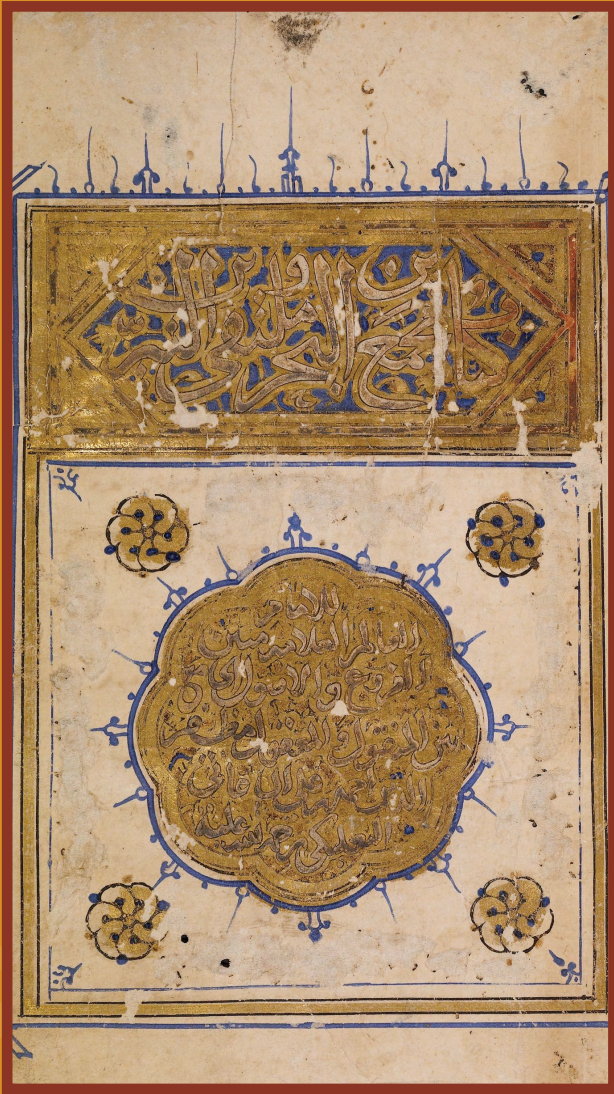 كتاب مجمع البحرين وملتقى النيرين
للامام
العالم العلامه متقن
الفروع والاصول
المنقول والمعقول مظفر
الدين احمد
البعلبكي رحمة الله عليه